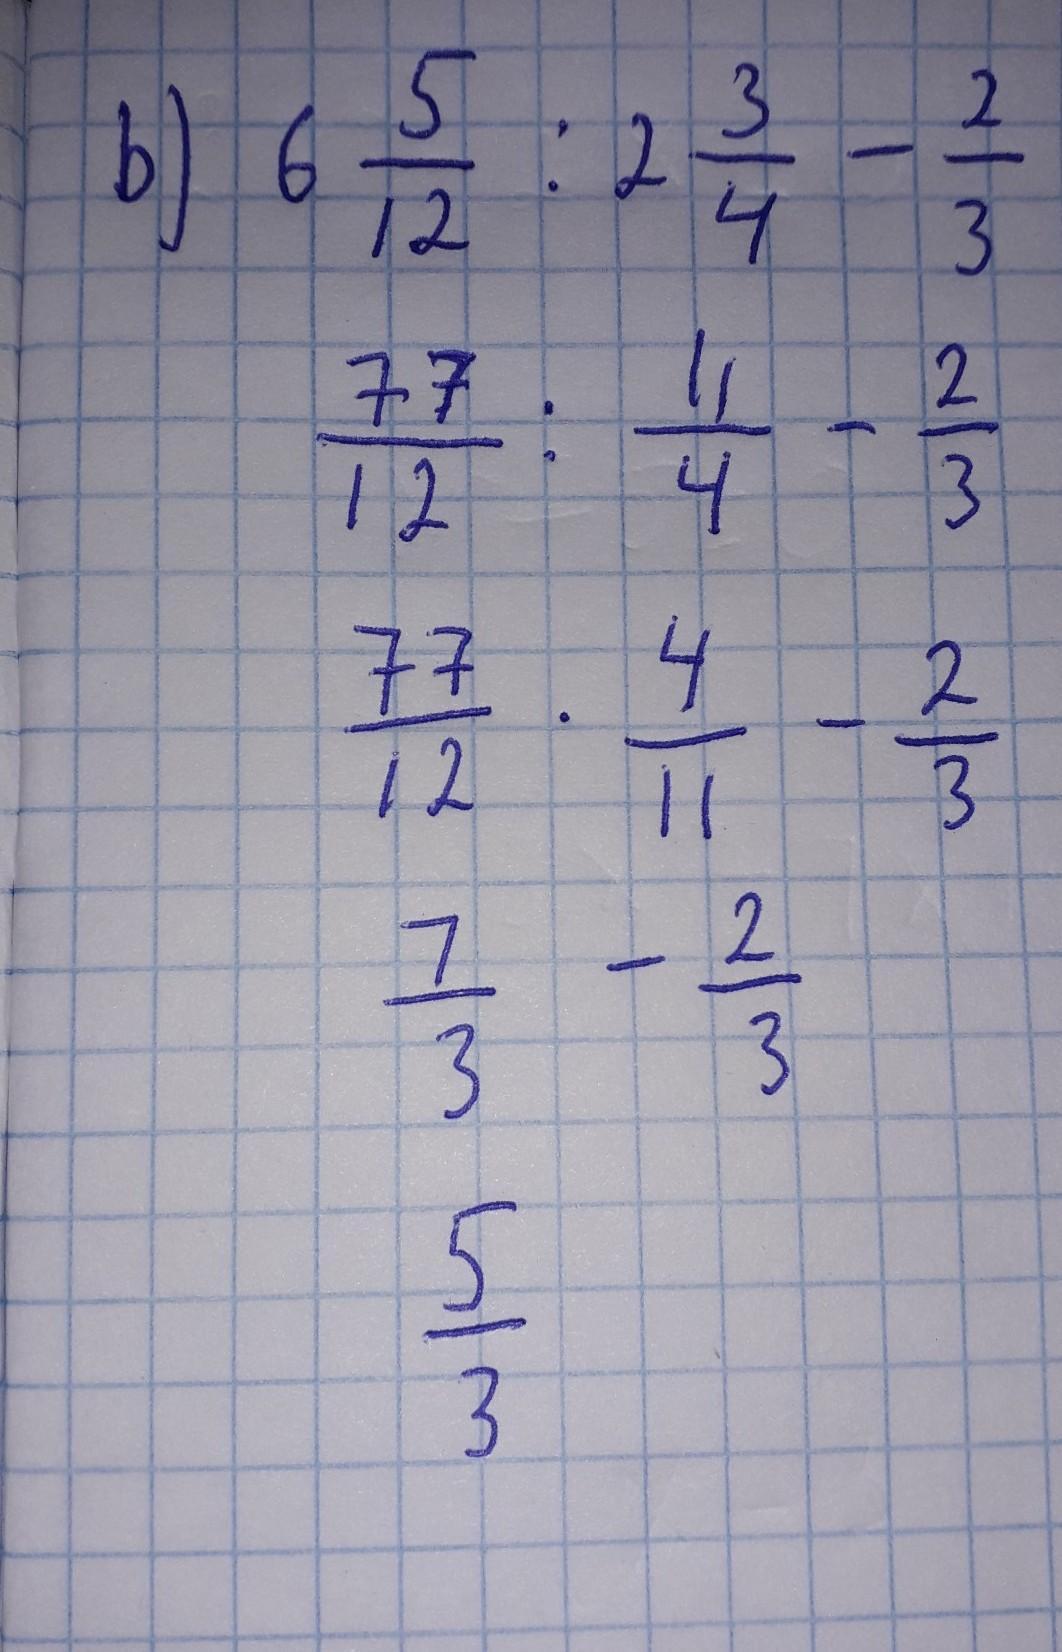 b) 6 5/12 : 2 3/4 - 2/3
77/12 : 11/4 - 2/3
77/12 · 4/11 - 2/3
7/3 - 2/3
5/3